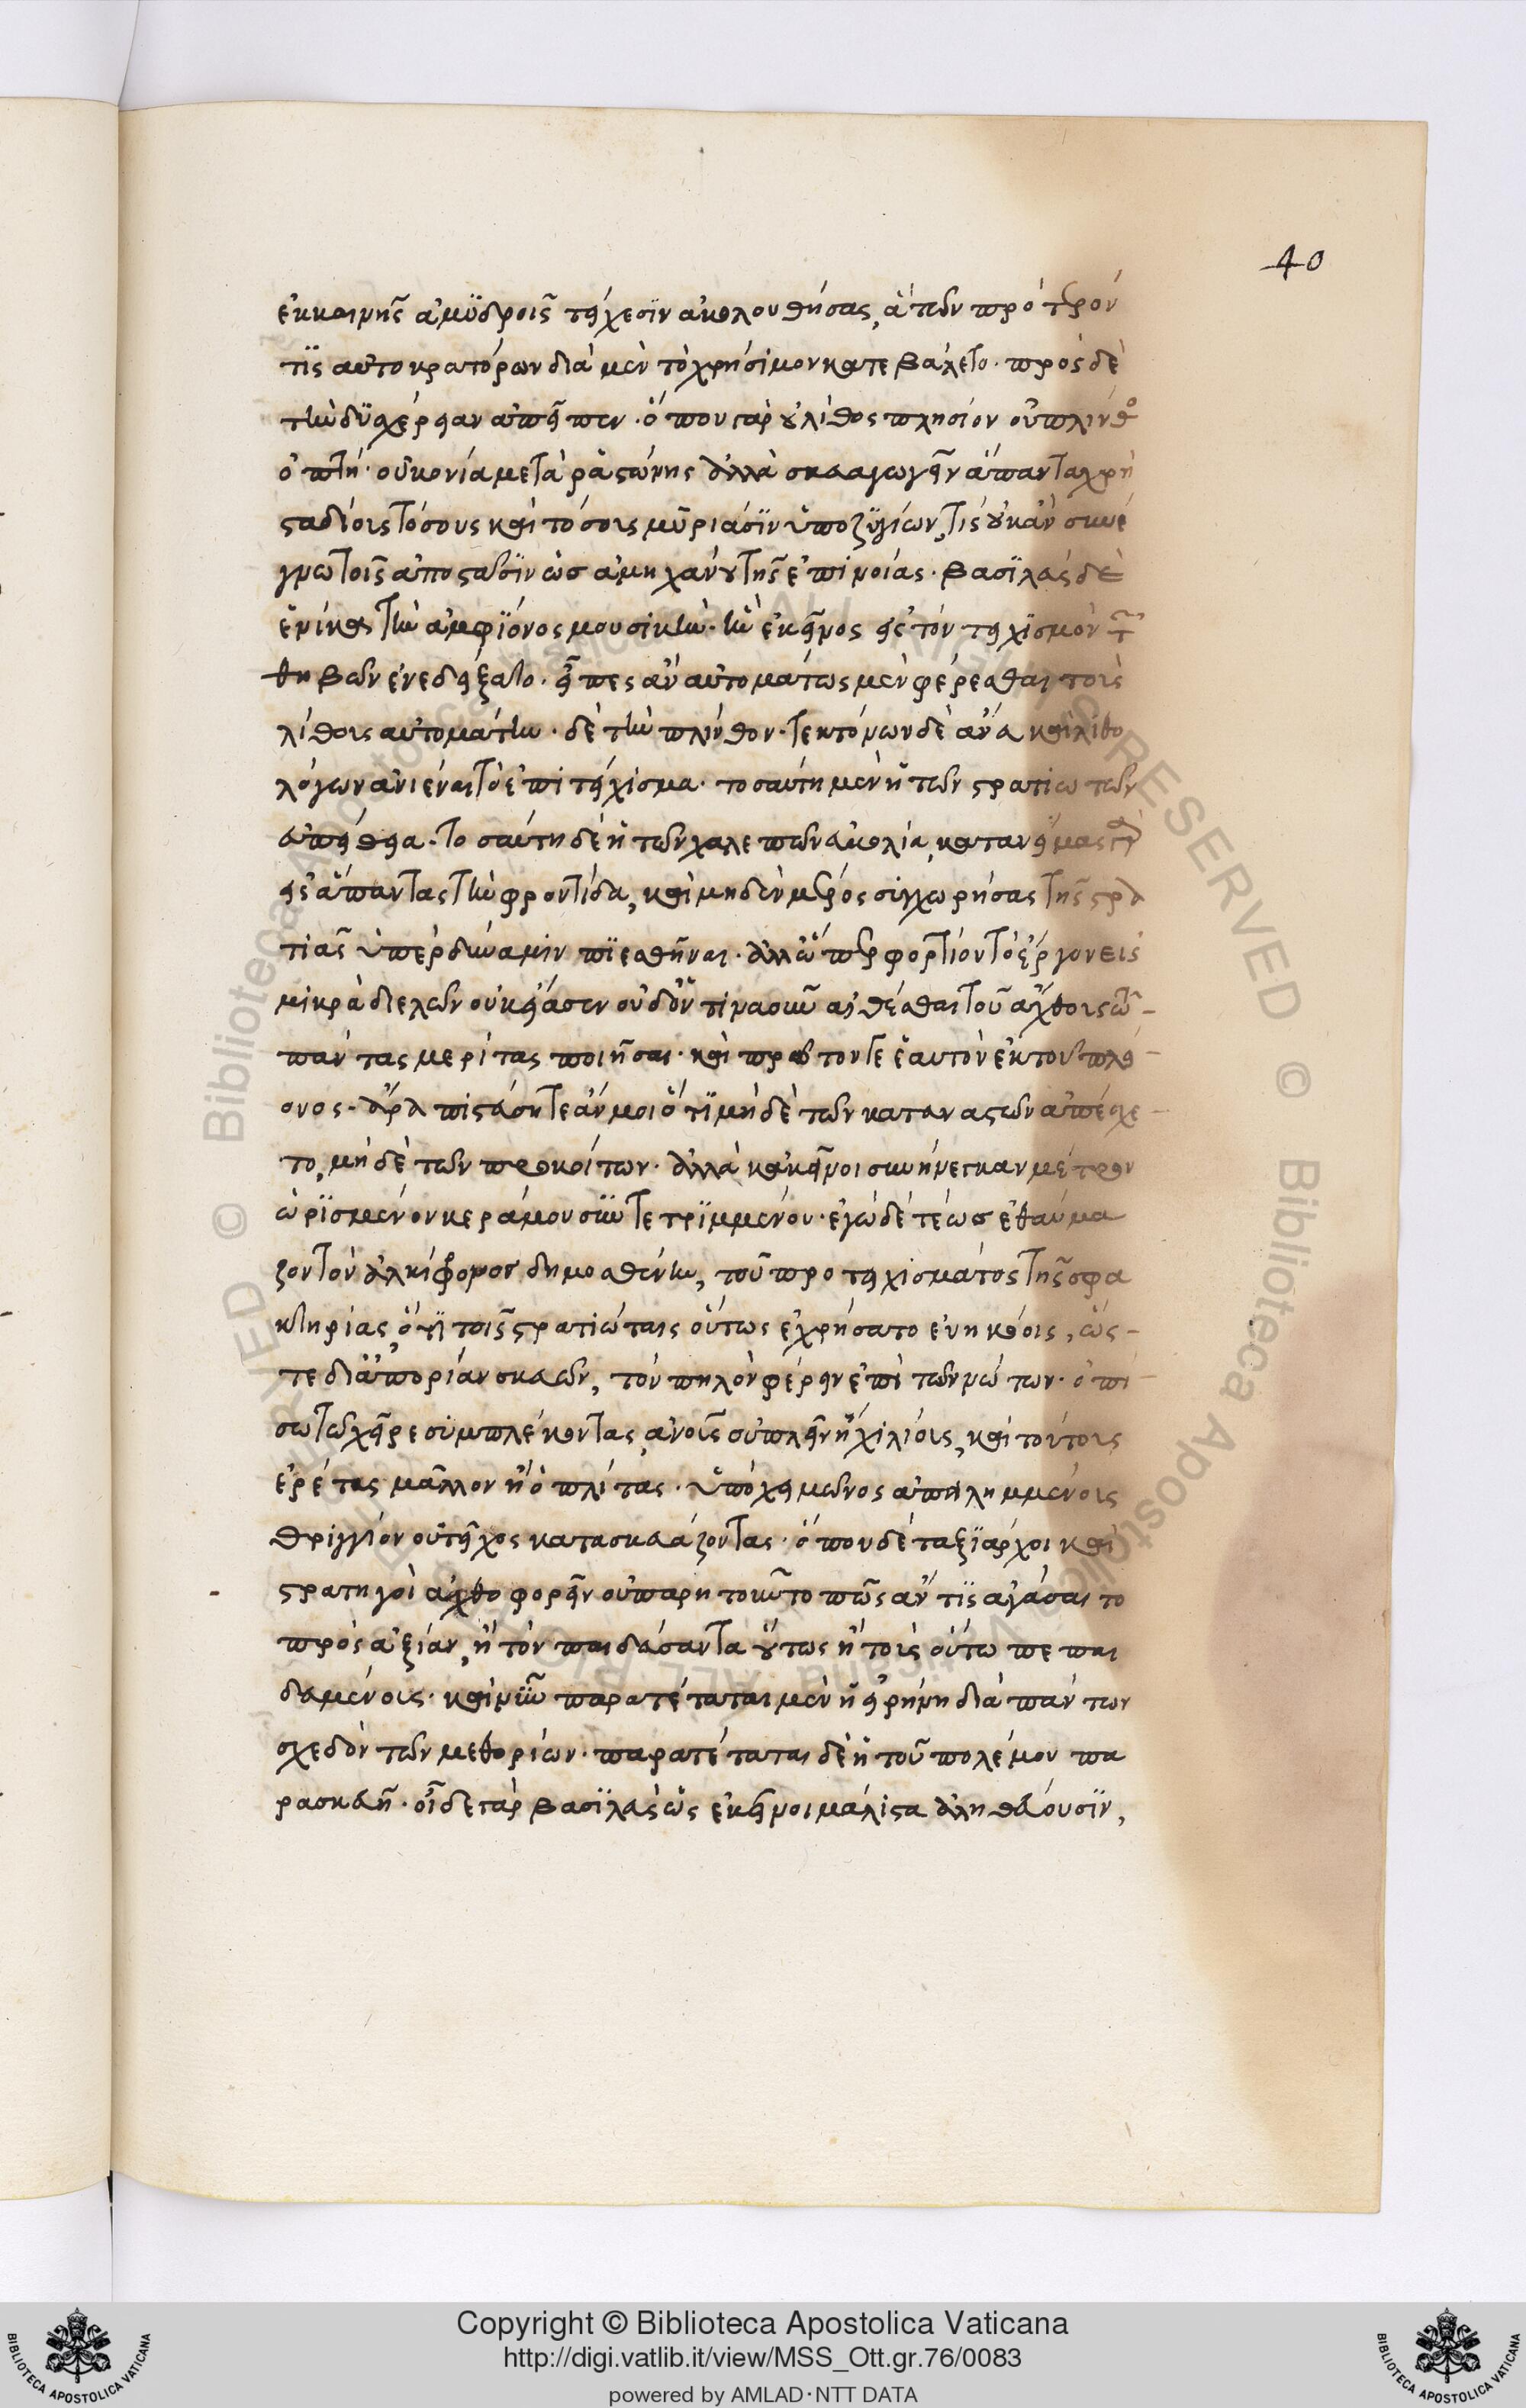 40
ἐκκοινῆς ἀμϋδροῖς τείχεσϊν ἀκολουθήσας, ἃ τῶν πρότερόν
τϊς αὐτοκρατόρων διὰ μὲν τὸ χρήσιμον κατεβάλετο. πρὸς δὲ
τὴν δϋσχέρειαν ἀπεῖπεν. ὅπου γὰρ οὐ λίθος πλησίον οὐ πλίνθος
ὀπτή. οὐ κονία μετὰ ῥαστώνης ἀλλὰ σκευαγωγεῖν ἅπαντα χρὴ
σταδίοις τόσους καὶ τόσοις μϋριάσϊν ὑποζϋγίων, τίς οὐκ ἂν συνέ
γνω τοῖς ἀποστᾶσϊν ὡς ἀμηχάνου τῆς ἐπινοίας. βασϊλεὺς δὲ
ἐνίκα τὴν ἀμφϊόνος μουσικὴν. ἣν ἐκεῖνος εἰς τὸν τειχϊσμὸν τῶν
θηβῶν ἐνεδείξατο. εἶπες ἂν αὐτομάτως μὲν φέρεσθαι τοὺς
λίθους αὐτομάτην. δὲ τὴν πλίνθον. τεκτόνων δὲ ἄνευ καὶ λιθο
λόγων ἀνιέναι τὸ ἐπιτείχισμα. τοσαύτη μὲν ἡ τῶν στρατιωτῶν
εὐπείθεια. τοσαύτη δὲ ἡ τῶν χαλεπῶν εὐκολία, κατανείμας γὰρ
εἰς ἅπαντας τὴν φροντίδα, καὶ μηδὲν μέρος συγχωρήσας τῆς στρα
τιᾶς ὑπὲρ δύναμιν πϊεσθῆναι. ἀλλ' ὥσπερ φορτίον τὸ ἔργον εἰς
μικρὰ διελὼν οὐκ εἴασεν οὐδὲν τινα συναισθέσθαι τοῦ ἄχθους τῶ
πάντας μερίτας ποιῆσαι. καὶ πρῶτόν γε ἑαυτὸν ἐκ τοῦ πλεί
ονος. ἆρα πιστεύσητε ἄν μοι ὅτϊ μὴ δὲ τῶν κατευναστῶν ἀπέσχε
το, μὴ δὲ τῶν προκοίτων. ἀλλὰ κἀκεῖνοι συνήνεγκαν μέτρον
ὡρϊσμένον κεράμου συντετρϊμμένου. ἐγὼ δὲ τέως ἐθαύμα
ζον τὸν ἀλκίφρονος δημοσθένην, τοῦ πρὸ τειχίσματος τῆς σφα
κτηρίας, ὅτϊ τοῖς στρατιώταις οὕτως ἐχρήσατο εὐηκόοις, ὥς
τε δι' ἀπορίαν σκευῶν, τὸν πηλὸν φέρειν ἐπὶ τῶν νώτων. ὀπί
σω τὼ χεῖρε συμπλέκοντας, ἀνοῖς οὐ πλεῖν ἢ χιλίοις, καὶ τούτοις
ἐρέτας μᾶλλον ἢ ὁπλίτας. ὑπὸ χειμῶνος ἀπειλημμένοις
θριγγίον οὐ τεῖχος κατασκευάζοντας. ὅπου δὲ ταξϊάρχοι καὶ
στρατηγοὶ ἀχθοφορεῖν οὐ παρῃτοῦντο πῶς ἄν τϊς ἀγάσαιτο
πρὸς ἀξίαν, ἢ τὸν παιδεύσαντα οὕτως ἢ τοὺς οὕτω πεπαι
δευμένους. καὶ νῦν παρατέταται μὲν ἡ εἰρήνη διὰ πάντων
σχεδὸν τῶν μεθορίων. παρατέταται δὲ ἡ τοῦ πολέμου πα
ρασκευῆ. οἶδε γὰρ βασϊλεὺς ὡς ἐκεῖνοι μάλιστα ἀληθεύουσϊν,
Copyright © Biblioteca Apostolica Vaticana
http://digi.vatlib.it/view/MSS_Ott.gr.76/0083
powered by AMLAD·NTT DATA